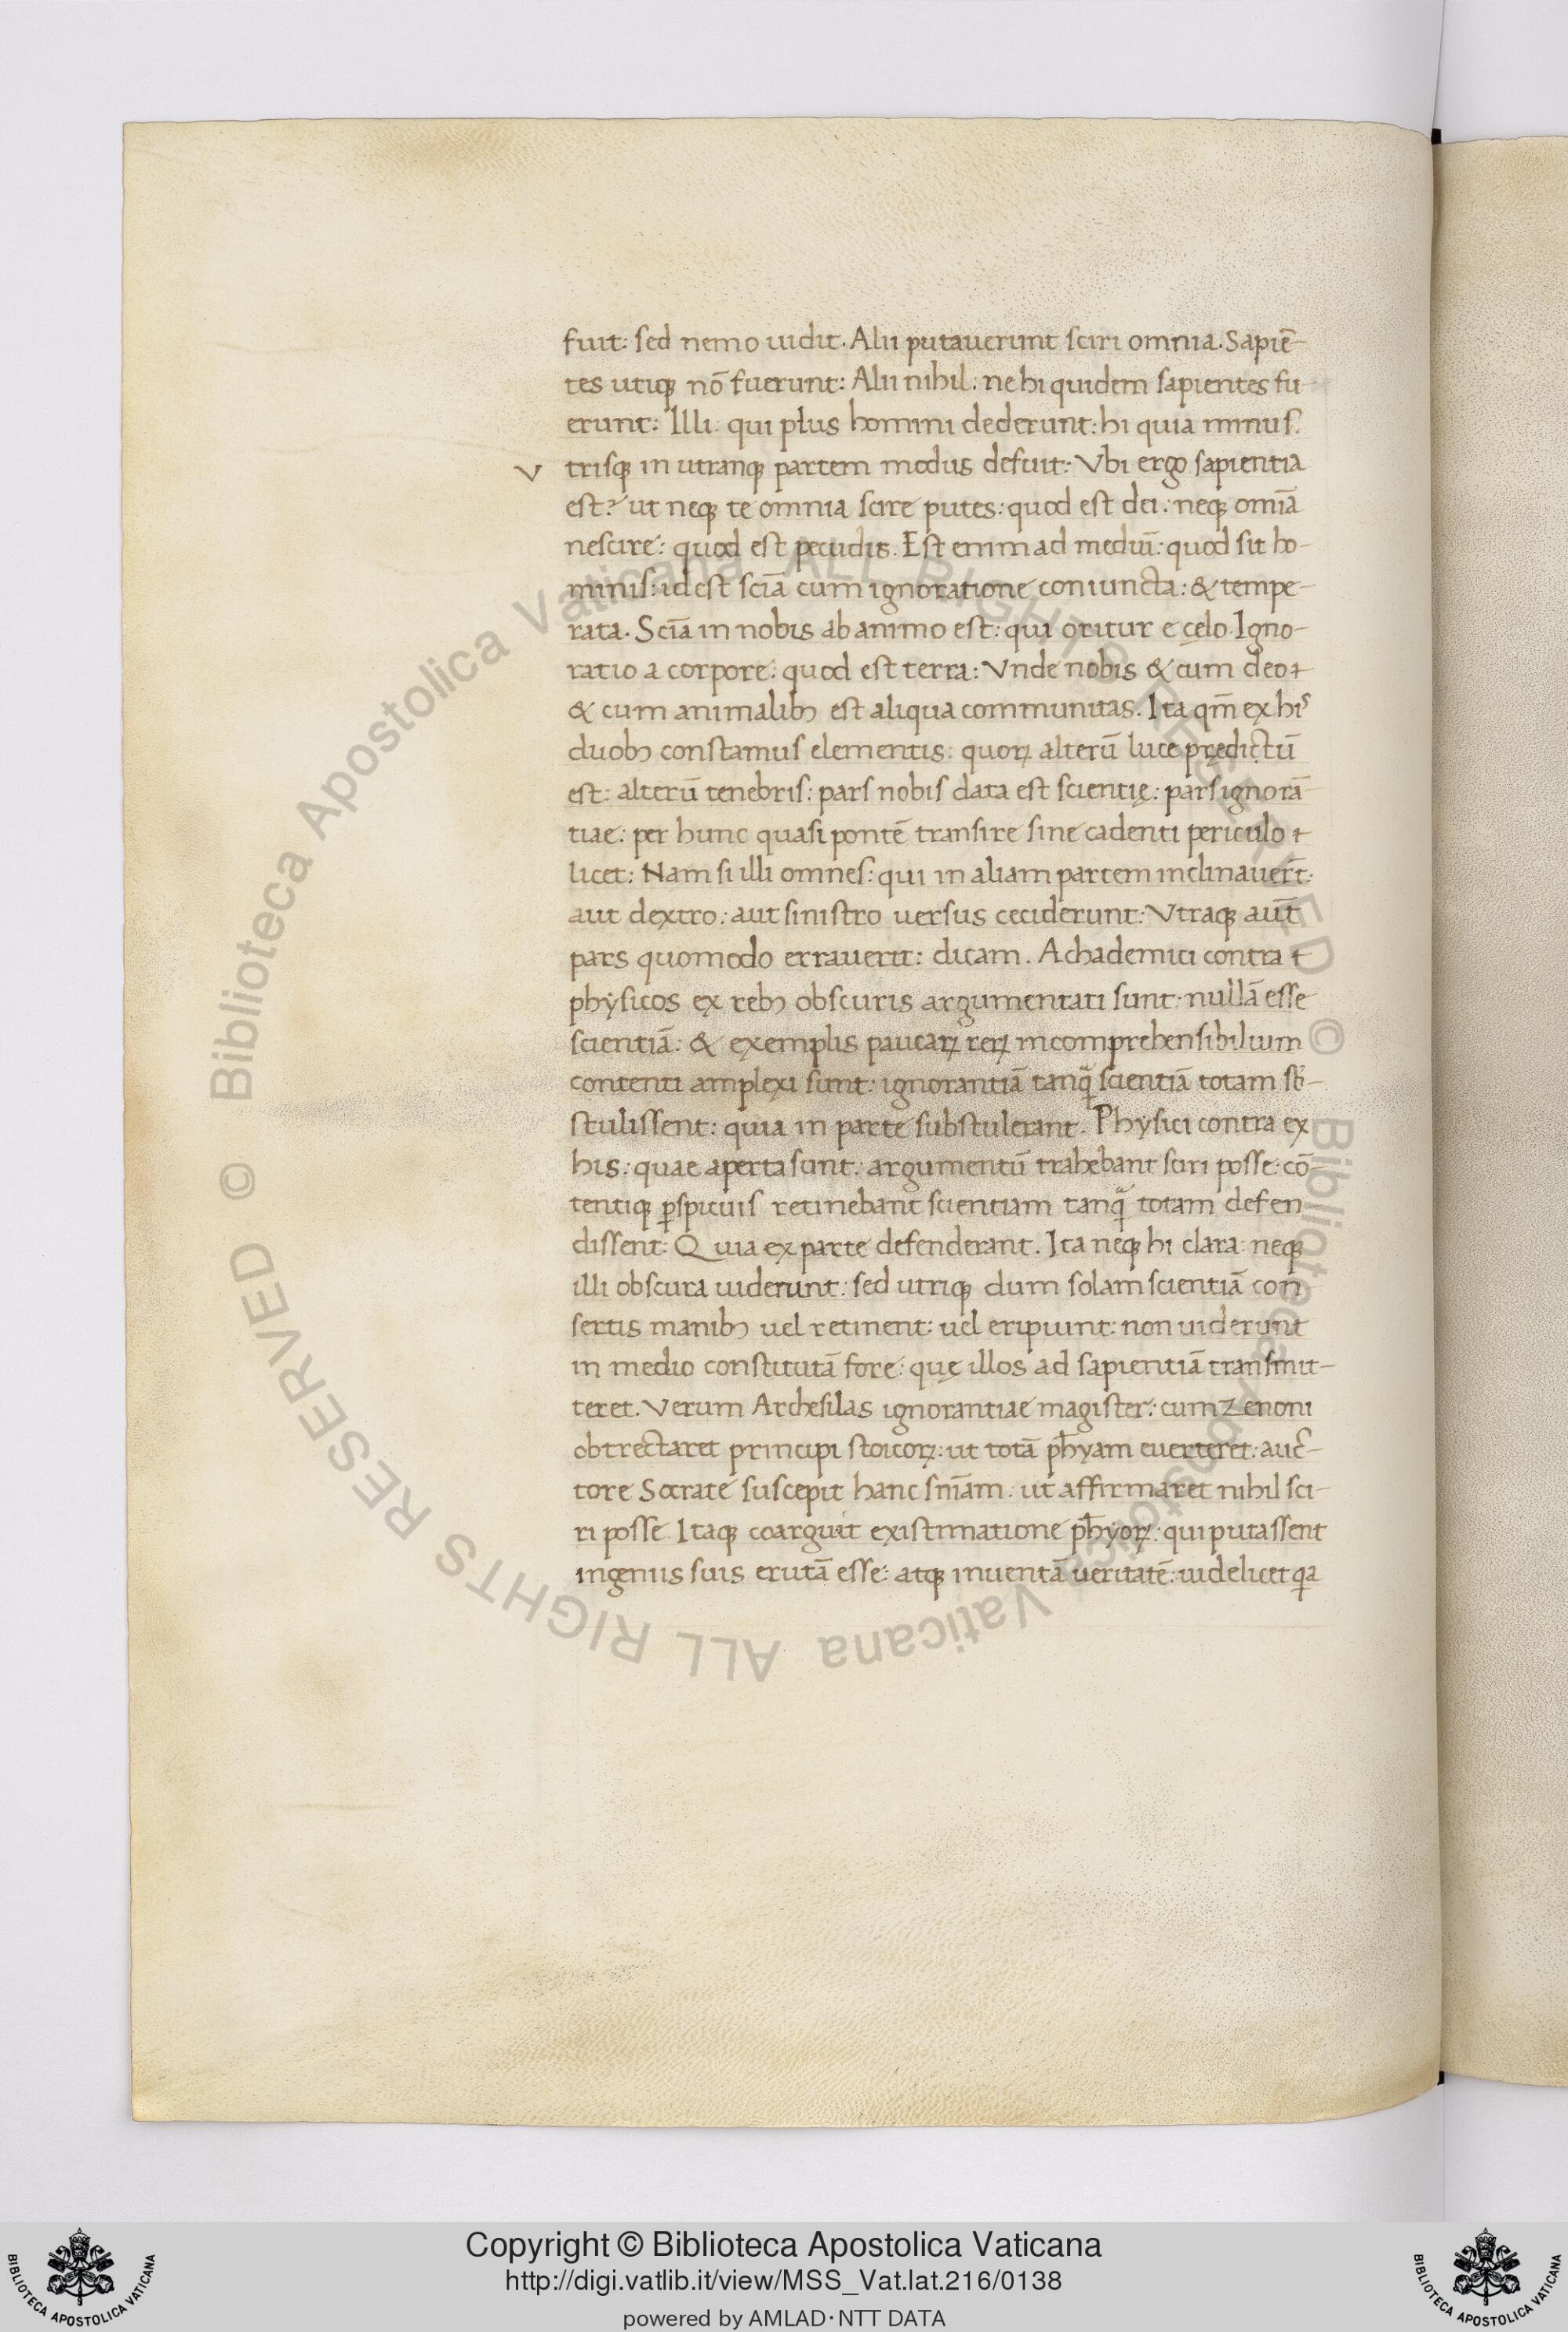 fuit: sed nemo uidit. Alii putauerunt sciri omnia. Sapiē-
tes utiqꝫ nō fuerunt: Alii nihil: ne hi quidem sapientes fu
erunt: Illi: qui plus homini dederunt: hi quia minus:
V trisqꝫ in utranqꝫ partem modus defuit: Vbi ergo sapientia
est? ut neqꝫ te omnia scire putes: quod est dei: neqꝫ omīa
nescire: quod est pecudis. Est enim ad mediū: quod sit ho-
minis: id est scīa cum ignoratione coniuncta: & tempe-
rata. Scīa in nobis ab animo est: qui oritur e cęlo. Igno-
ratio a corpore: quod est terra: Vnde nobis & cum deo
& cum animalibꝫ est aliqua communitas. Ita qm̄ ex his
duobꝫ constamus elementis: quoꝝ alterū luce prędictū
est: alterū tenebris: pars nobis data est scientię: pars ignorā
tiae: per hunc quasi pontē transire sine cadenti periculo
licet: Nam si illi omnes: qui in aliam partem inclinauer̄t:
aut dextro: aut sinistro uersus ceciderunt: Vtraqꝫ aut̄
pars quomodo errauerit: dicam. Achademici contra
physicos ex rebꝫ obscuris argumentati sunt: nullā esse
scientiā: & exemplis paucaꝝ reꝝ incomprehensibilium
contenti amplexi sunt: ignorantiā tanqͣ scientiā totam sb̄-
stulissent: quia in parte substulerant. Physici contra ex
his: quae aperta sunt: argumentū trahebant sciri posse: cō-
tentiqꝫ ꝑspicuis retinebant scientiam tanqͣ totam defen
dissent: Quia ex parte defenderant. Ita neqꝫ hi clara: neqꝫ
illi obscura uiderunt: sed utriqꝫ dum solam scientiā con
sertis manibꝫ uel retinent: uel eripiunt: non uiderunt
in medio constitutā fore: quę illos ad sapientiā transmit-
teret. Verum Archesilas ignorantiae magister: cum Zenoni
obtrectaret principi stoicoꝝ: ut totā ph̄yam euerteret: auc̄-
tore Socrate suscepit hanc sn̄iam: ut affirmaret nihil sci-
ri posse. Itaqꝫ coarguit existimatione ph̄yoꝝ: qui putassent
ingeniis suis erutā esse: atqꝫ inuentā ueritatē: uidelicet qͥa
Copyright © Biblioteca Apostolica Vaticana
http://digi.vatlib.it/view/MSS_Vat.lat.216/0138
powered by AMLAD·NTT DATA
BIBLIOTECA APOSTOLICA VATICANA
BIBLIOTECA APOSTOLICA VATICANA
© Biblioteca Apostolica Vaticana ALL RIGHTS RESERVED © Biblioteca Apostolica Vaticana ALL RIGHTS RESERVED